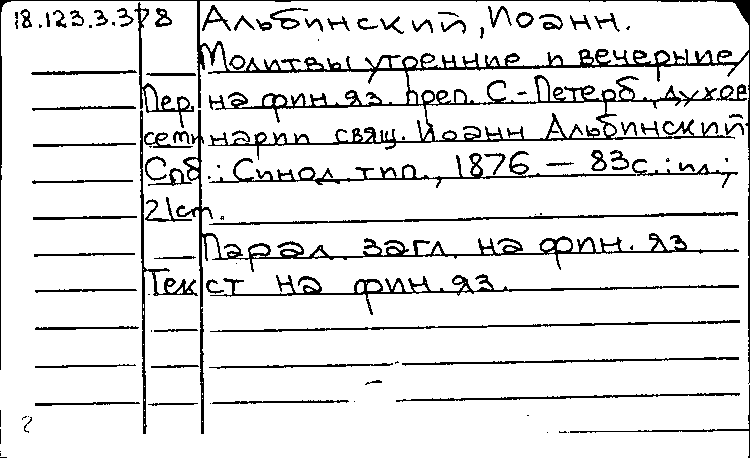 18.123.3.378 Альбинский, Иоанн.
Молитвы утренние и вечерние /
Пер. на фин. яз. преп. С.-Петерб. духов
семинарии свящ. Иоанн Альбинский
Спб.: Синод. тип., 1876. — 83с.: ил.;
21см.
Парал. загл. на фин. яз.
Текст на фин. яз.
2